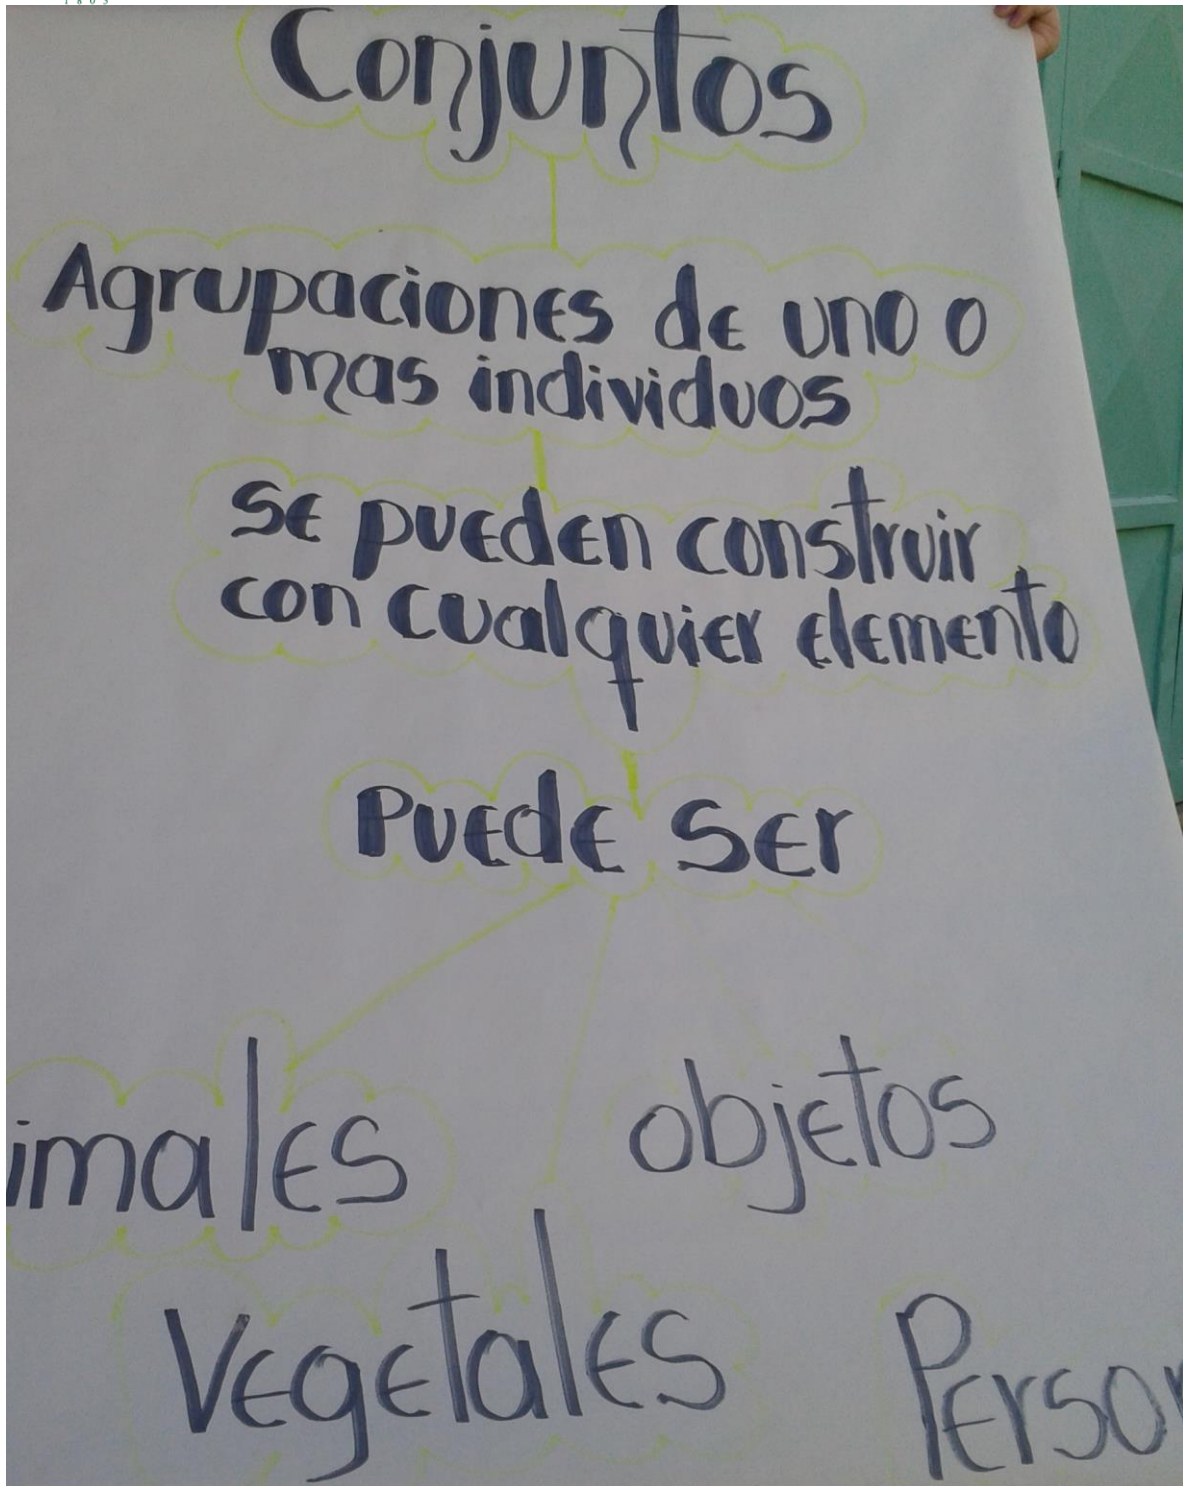 Conjuntos
Agrupaciones de uno o
mas individuos
se pueden construir
con cualquier elemento
Puede ser
imales
objetos
Vegetales
Person